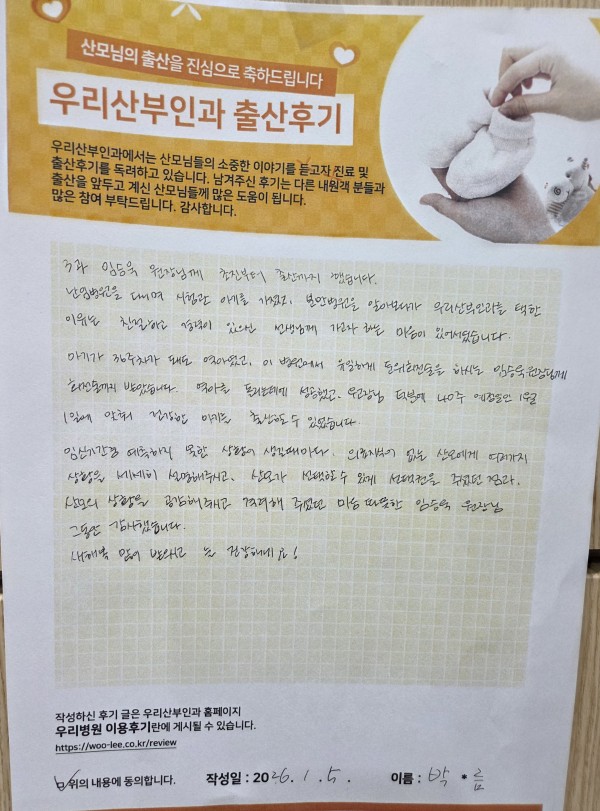 산모님의 출산을 진심으로 축하드립니다
우리산부인과 출산후기
우리산부인과에서는 산모님들의 소중한 이야기를 듣고자 진료 및
출산후기를 독려하고 있습니다. 남겨주신 후기는 다른 내원객 분들과
출산을 앞두고 계신 산모님들께 많은 도움이 됩니다.
많은 참여 부탁드립니다. 감사합니다.
3과 임승욱 원장님께 초진부터 출산까지 했습니다.
난임병원을 다니며 시험관 아기를 가졌고, 분만병원을 알아보다가 우리산부인과를 택한
이유는 친절하고 경력이 있으신 선생님께 가고자 하는 마음이 있어서였습니다.
아기가 36주차가 돼도 역아였고, 이 병원에서 유일하게 둔위회전술을 하시는 임승욱 원장님께
회전술까지 받았습니다. 역아를 돌리는데에 성공했고, 원장님 덕분에 40주 예정일인 1월
1일에 맞춰 건강한 아기를 출산할 수 있었습니다.
임신기간중 예측하지 못한 상황이 생길때마다, 의료지식이 없는 산모에게 여러가지
상황을 세세히 설명해주시고, 산모가 선택할 수 있게 선택권을 주셨던 점과,
산모의 상황을 공감해주시고 격려해 주셨던 마음 따뜻한 임승욱 원장님
그동안 감사했습니다.
새해복 많이 받으시고 늘 건강하세요!
작성하신 후기 글은 우리산부인과 홈페이지
우리병원 이용후기란에 게시될 수 있습니다.
https://woo-lee.co.kr/review
위의 내용에 동의합니다. 작성일 : 2026. 1. 5. 이름 : 박 * 름